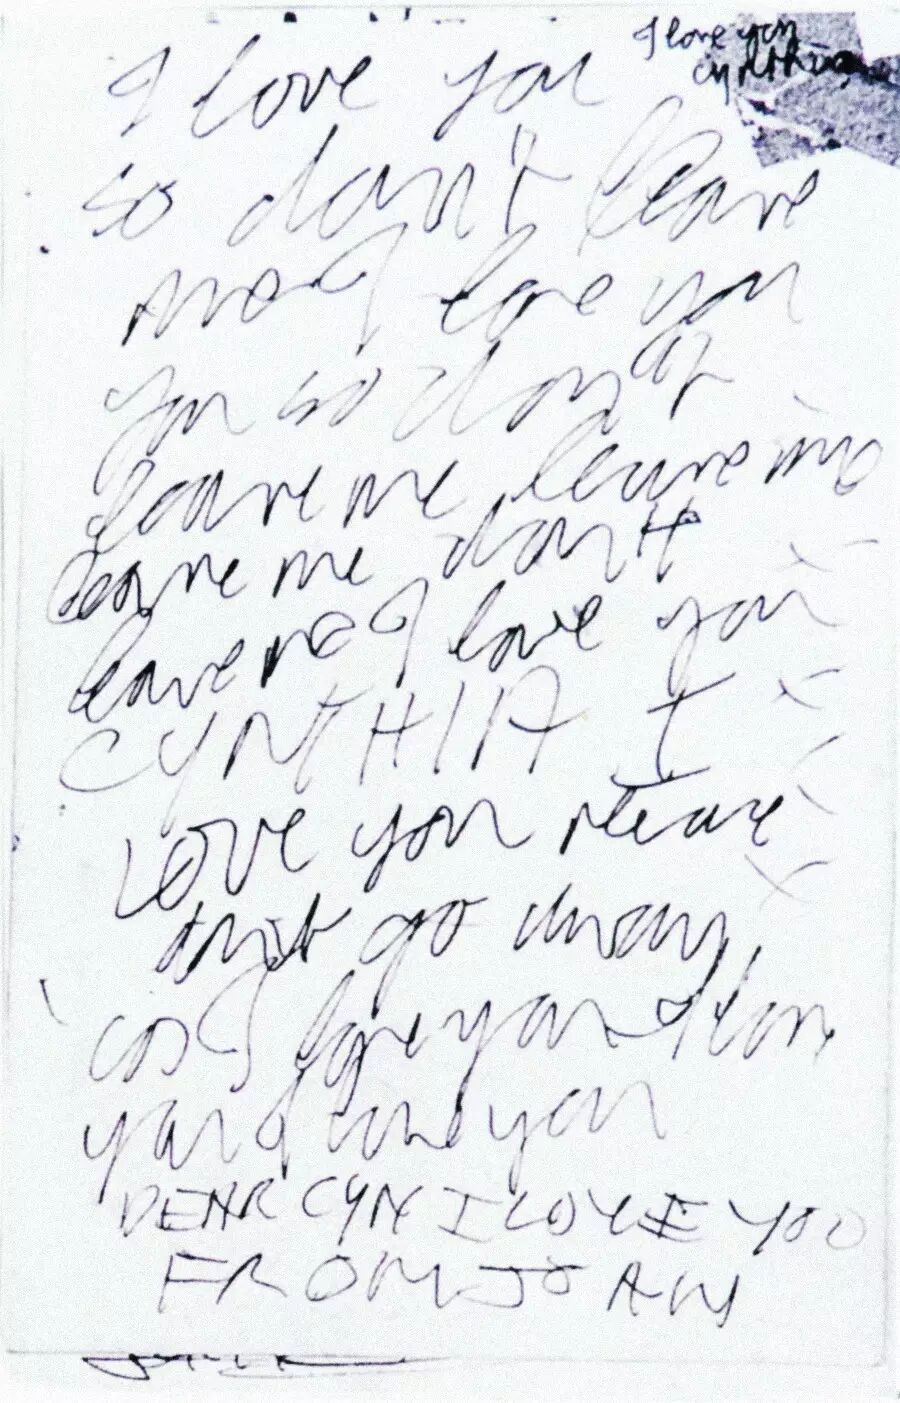 I love you
cynthia
I love you
so don't leave
me I love you
you so don't
leave me leave me
leave me don't
leave me I love you
CYNTHIA I
LOVE you please
don't go away
cos I love you I love
you I love you
DEAR CYN I LOVE YOU
FROM JO